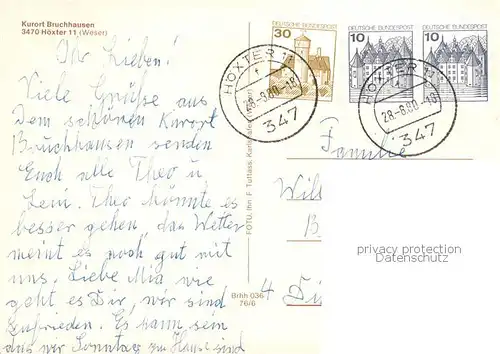 Kurort Bruchhausen
3470 Höxter 11 (Weser)
Ihr Lieben!
Viele Grüße aus
Dem schönen Kurort
Bruchhausen senden
Euch alle Theo u
Leni. Theo könnte es
besser gehen, das Wetter
meint es noch gut mit
uns. Liebe Mia wie
geht es Dir, wir sind
zufrieden. Es kann sein
das wir Sonntag zu Hause sind
FOTO: Ihn F. Tuttass, Karlshafen
Brhh 036
76/6
30
DEUTSCHE BUNDESPOST
10
DEUTSCHE BUNDESPOST
10
DEUTSCHE BUNDESPOST
HÖXTER 11
28.-8.80.-18
347
HÖXTER 11
28.-8.80-18
347
Familie
Will
B
4
privacy protection
Datenschutz